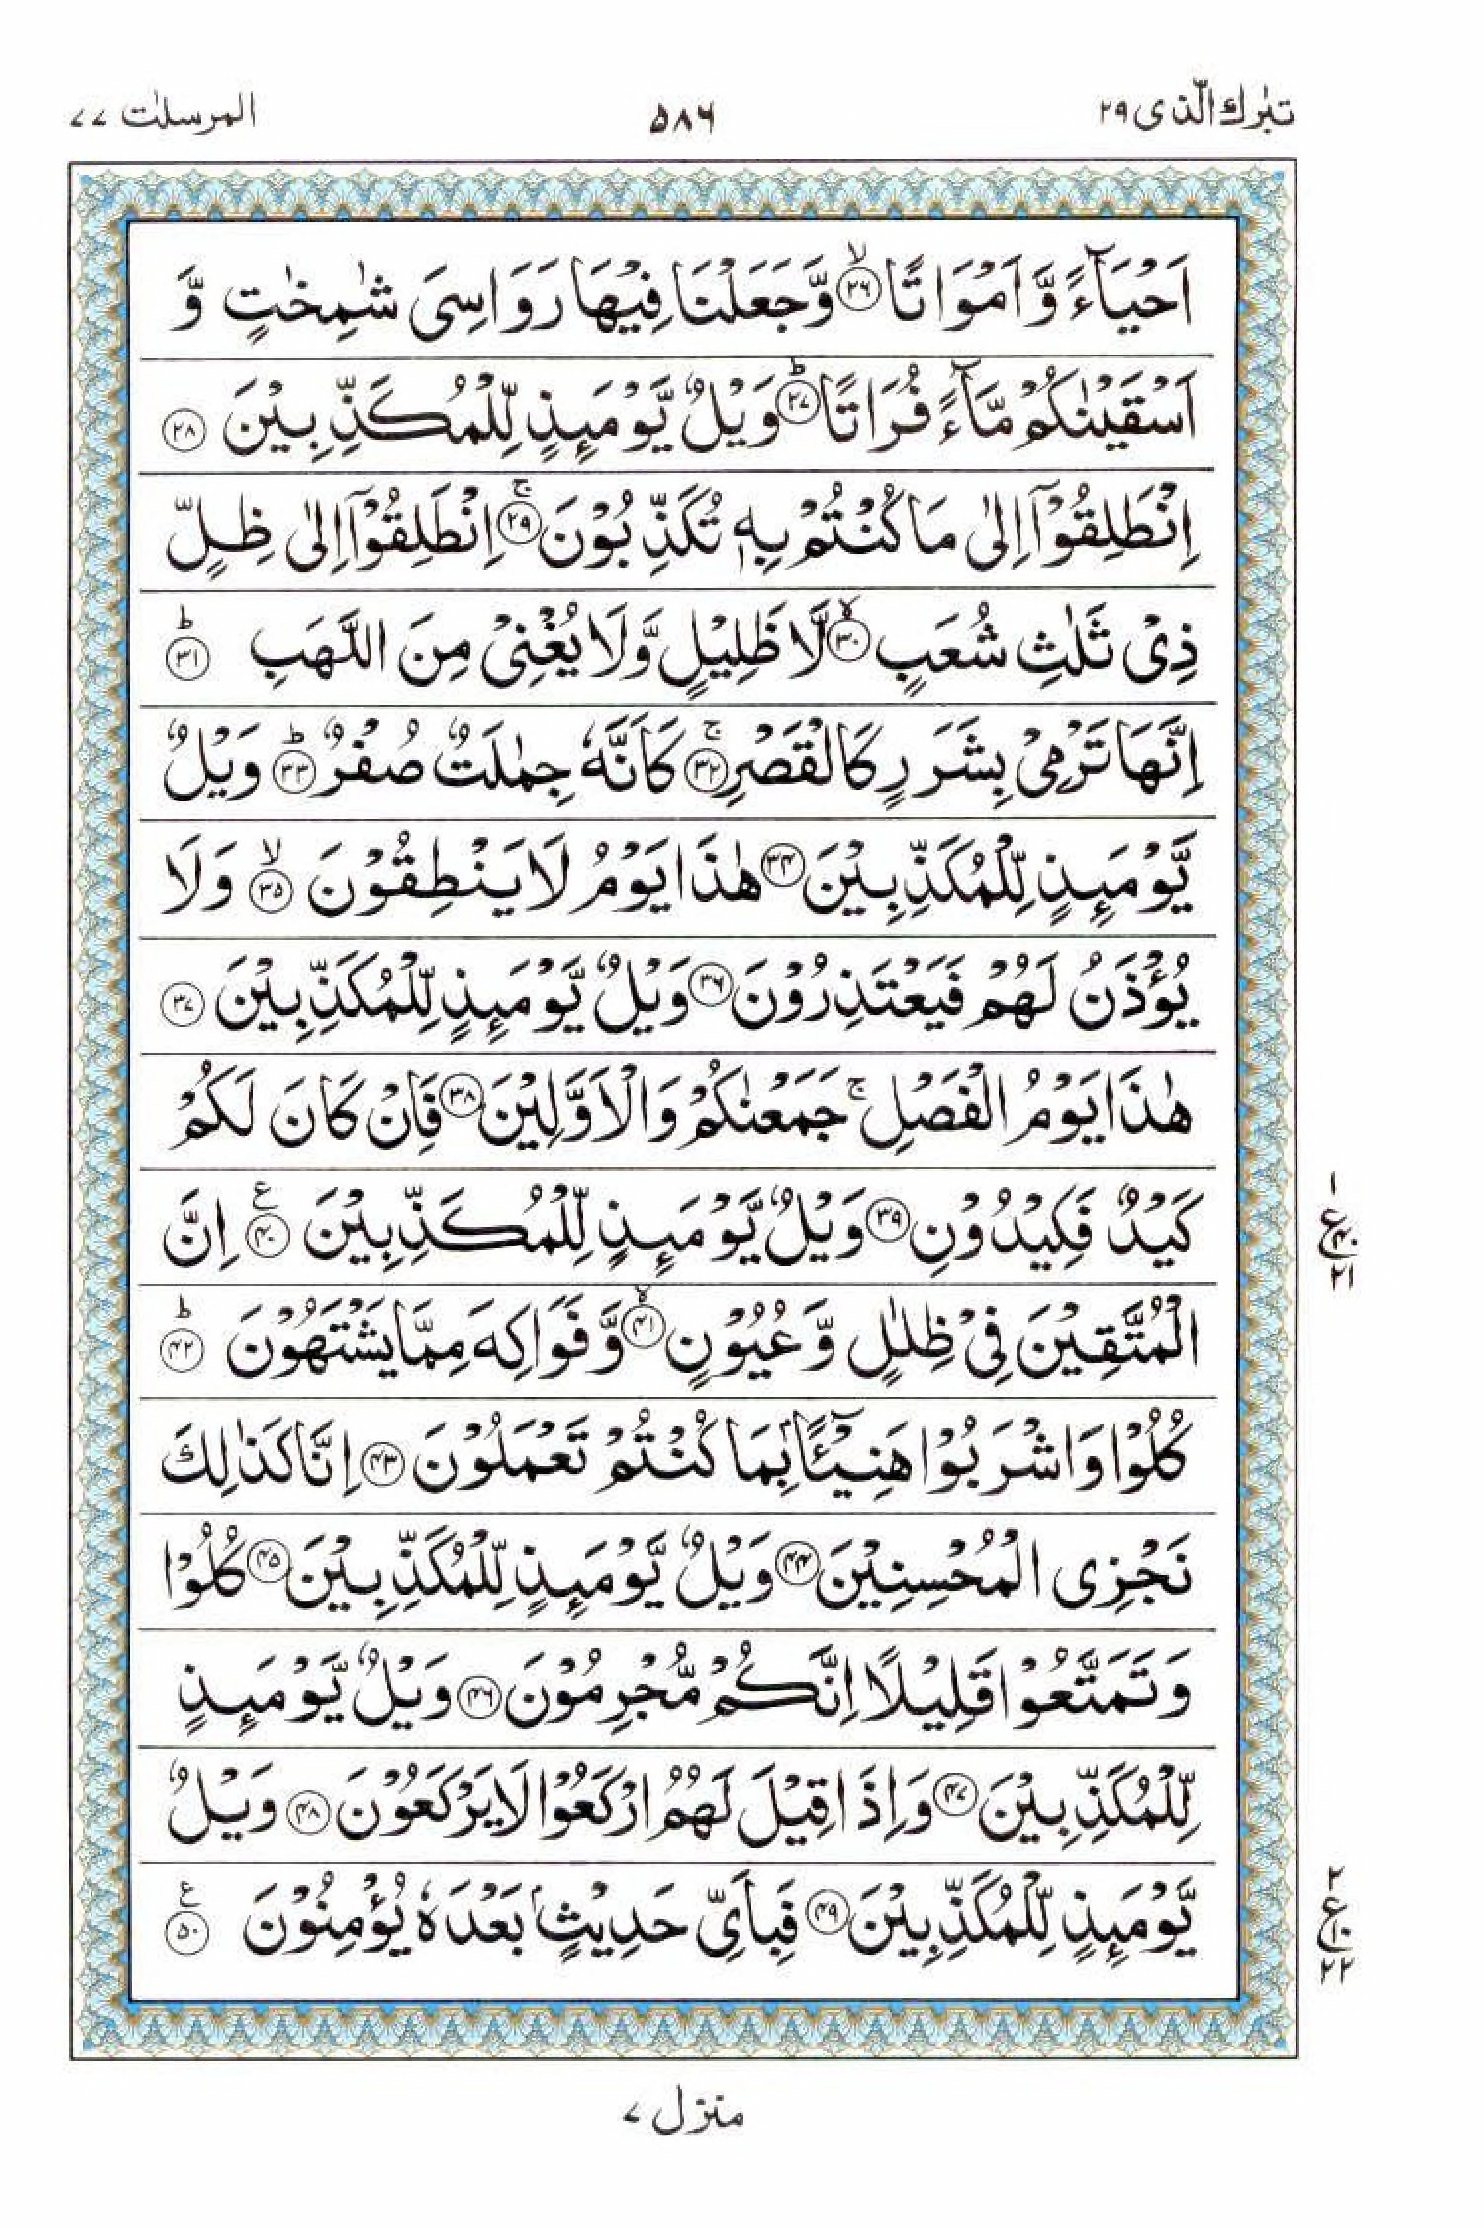 تبٰرك الّذی ۲۹
۵۸۶
المرسلٰت ۷۷
اَحْيَآءً وَّاَمْوَاتًا ۙ﴿۲۶﴾ وَّجَعَلْنَا فِيْهَا رَوَاسِىَ شٰمِخٰتٍ وَّ
اَسْقَيْنٰكُمْ مَّآءً فُرَاتًا ؕ﴿۲۷﴾ وَيْلٌ يَّوْمَىِٕذٍ لِّلْمُكَذِّبِيْنَ ﴿۲۸﴾
اِنْطَلِقُوْۤا اِلٰى مَا كُنْتُمْ بِهٖ تُكَذِّبُوْنَ ۚ﴿۲۹﴾ اِنْطَلِقُوْۤا اِلٰى ظِلٍّ
ذِىْ ثَلٰثِ شُعَبٍ ۙ﴿۳۰﴾ لَّا ظَلِيْلٍ وَّلَا يُغْنِىْ مِنَ اللَّهَبِ ؕ﴿۳۱﴾
اِنَّهَا تَرْمِىْ بِشَرَرٍ كَالْقَصْرِ ۚ﴿۳۲﴾ كَاَنَّهٗ جِمٰلَتٌ صُفْرٌ ؕ﴿۳۳﴾ وَيْلٌ
يَّوْمَىِٕذٍ لِّلْمُكَذِّبِيْنَ ﴿۳۴﴾ هٰذَا يَوْمُ لَا يَنْطِقُوْنَ ۙ﴿۳۵﴾ وَلَا
يُؤْذَنُ لَهُمْ فَيَعْتَذِرُوْنَ ﴿۳۶﴾ وَيْلٌ يَّوْمَىِٕذٍ لِّلْمُكَذِّبِيْنَ ﴿۳۷﴾
هٰذَا يَوْمُ الْفَصْلِ ۚ جَمَعْنٰكُمْ وَالْاَوَّلِيْنَ ﴿۳۸﴾ فَاِنْ كَانَ لَكُمْ
كَيْدٌ فَكِيْدُوْنِ ﴿۳۹﴾ وَيْلٌ يَّوْمَىِٕذٍ لِّلْمُكَذِّبِيْنَ ﴿۴۰﴾ ع اِنَّ
۱
ع
۴۰
۲۱
الْمُتَّقِيْنَ فِىْ ظِلٰلٍ وَّعُيُوْنٍ ۙ﴿۴۱﴾ وَّفَوَاكِهَ مِمَّا يَشْتَهُوْنَ ؕ﴿۴۲﴾
كُلُوْا وَاشْرَبُوْا هَنِيْٓئًۢا بِمَا كُنْتُمْ تَعْمَلُوْنَ ﴿۴۳﴾ اِنَّا كَذٰلِكَ
نَجْزِى الْمُحْسِنِيْنَ ﴿۴۴﴾ وَيْلٌ يَّوْمَىِٕذٍ لِّلْمُكَذِّبِيْنَ ﴿۴۵﴾ كُلُوْا
وَتَمَتَّعُوْا قَلِيْلًا اِنَّكُمْ مُّجْرِمُوْنَ ﴿۴۶﴾ وَيْلٌ يَّوْمَىِٕذٍ
لِّلْمُكَذِّبِيْنَ ﴿۴۷﴾ وَاِذَا قِيْلَ لَهُمُ ارْكَعُوْا لَا يَرْكَعُوْنَ ﴿۴۸﴾ وَيْلٌ
يَّوْمَىِٕذٍ لِّلْمُكَذِّبِيْنَ ﴿۴۹﴾ فَبِاَىِّ حَدِيْثٍۭ بَعْدَهٗ يُؤْمِنُوْنَ ﴿۵۰﴾ ع
۲
ع
۱۰
۲۲
منزل ۷